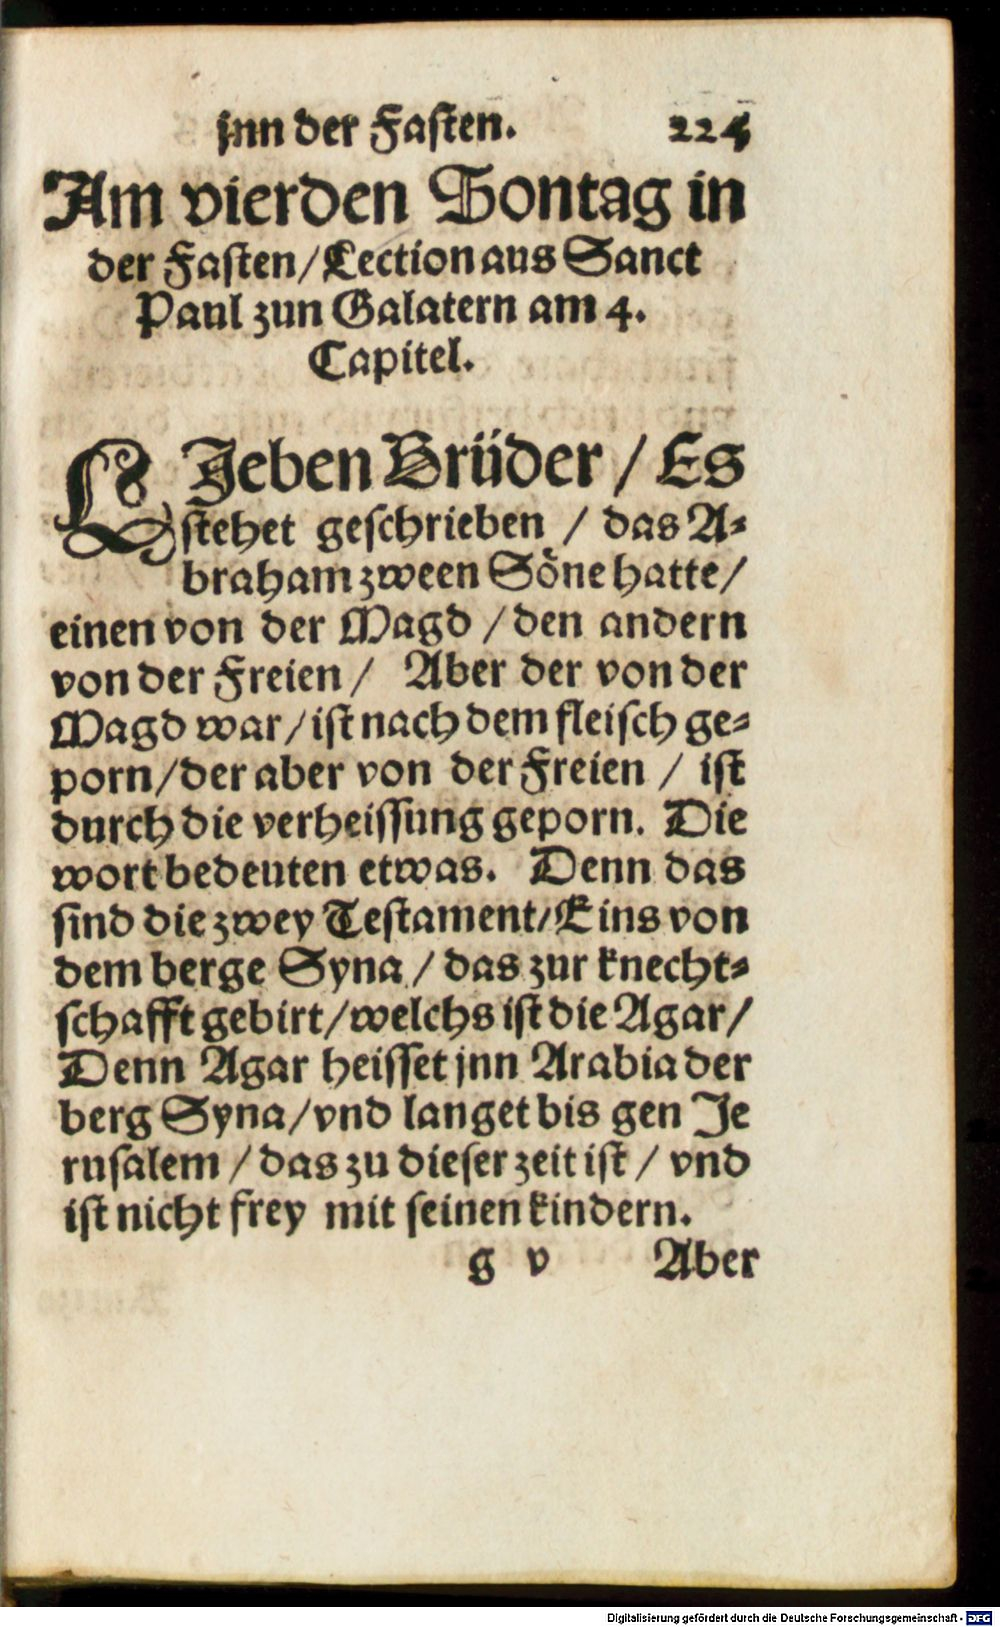 jnn der Fasten. 225
Am vierden Sontag in
der Fasten/Lection aus Sanct
Paul zun Galatern am 4.
Capitel.
LJeben Brüder / Es
stehet geschrieben / das A-
braham zween Söne hatte/
einen von der Magd / den andern
von der Freien / Aber der von der
Magd war/ist nach dem fleisch ge-
porn/der aber von der Freien / ist
durch die verheissung geporn. Die
wort bedeuten etwas. Denn das
sind die zwey Testament/Eins von
dem berge Syna / das zur knecht-
schafft gebirt/welchs ist die Agar/
Denn Agar heisset jnn Arabia der
berg Syna/vnd langet bis gen Je
rusalem / das zu dieser zeit ist / vnd
ist nicht frey mit seinen kindern.
g v Aber
Digitalisierung gefördert durch die Deutsche Forschungsgemeinschaft - DFG